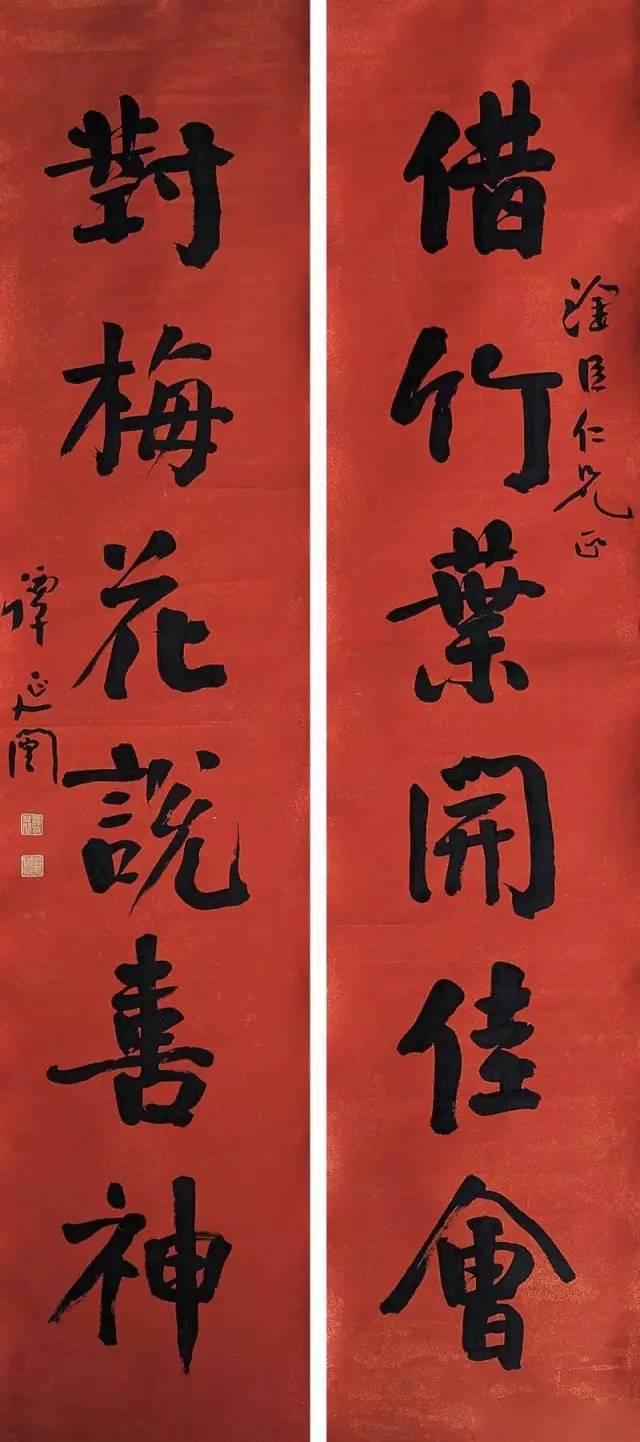 借竹葉開佳會
淦臣仁兄正
對梅花說喜神
譚延闓